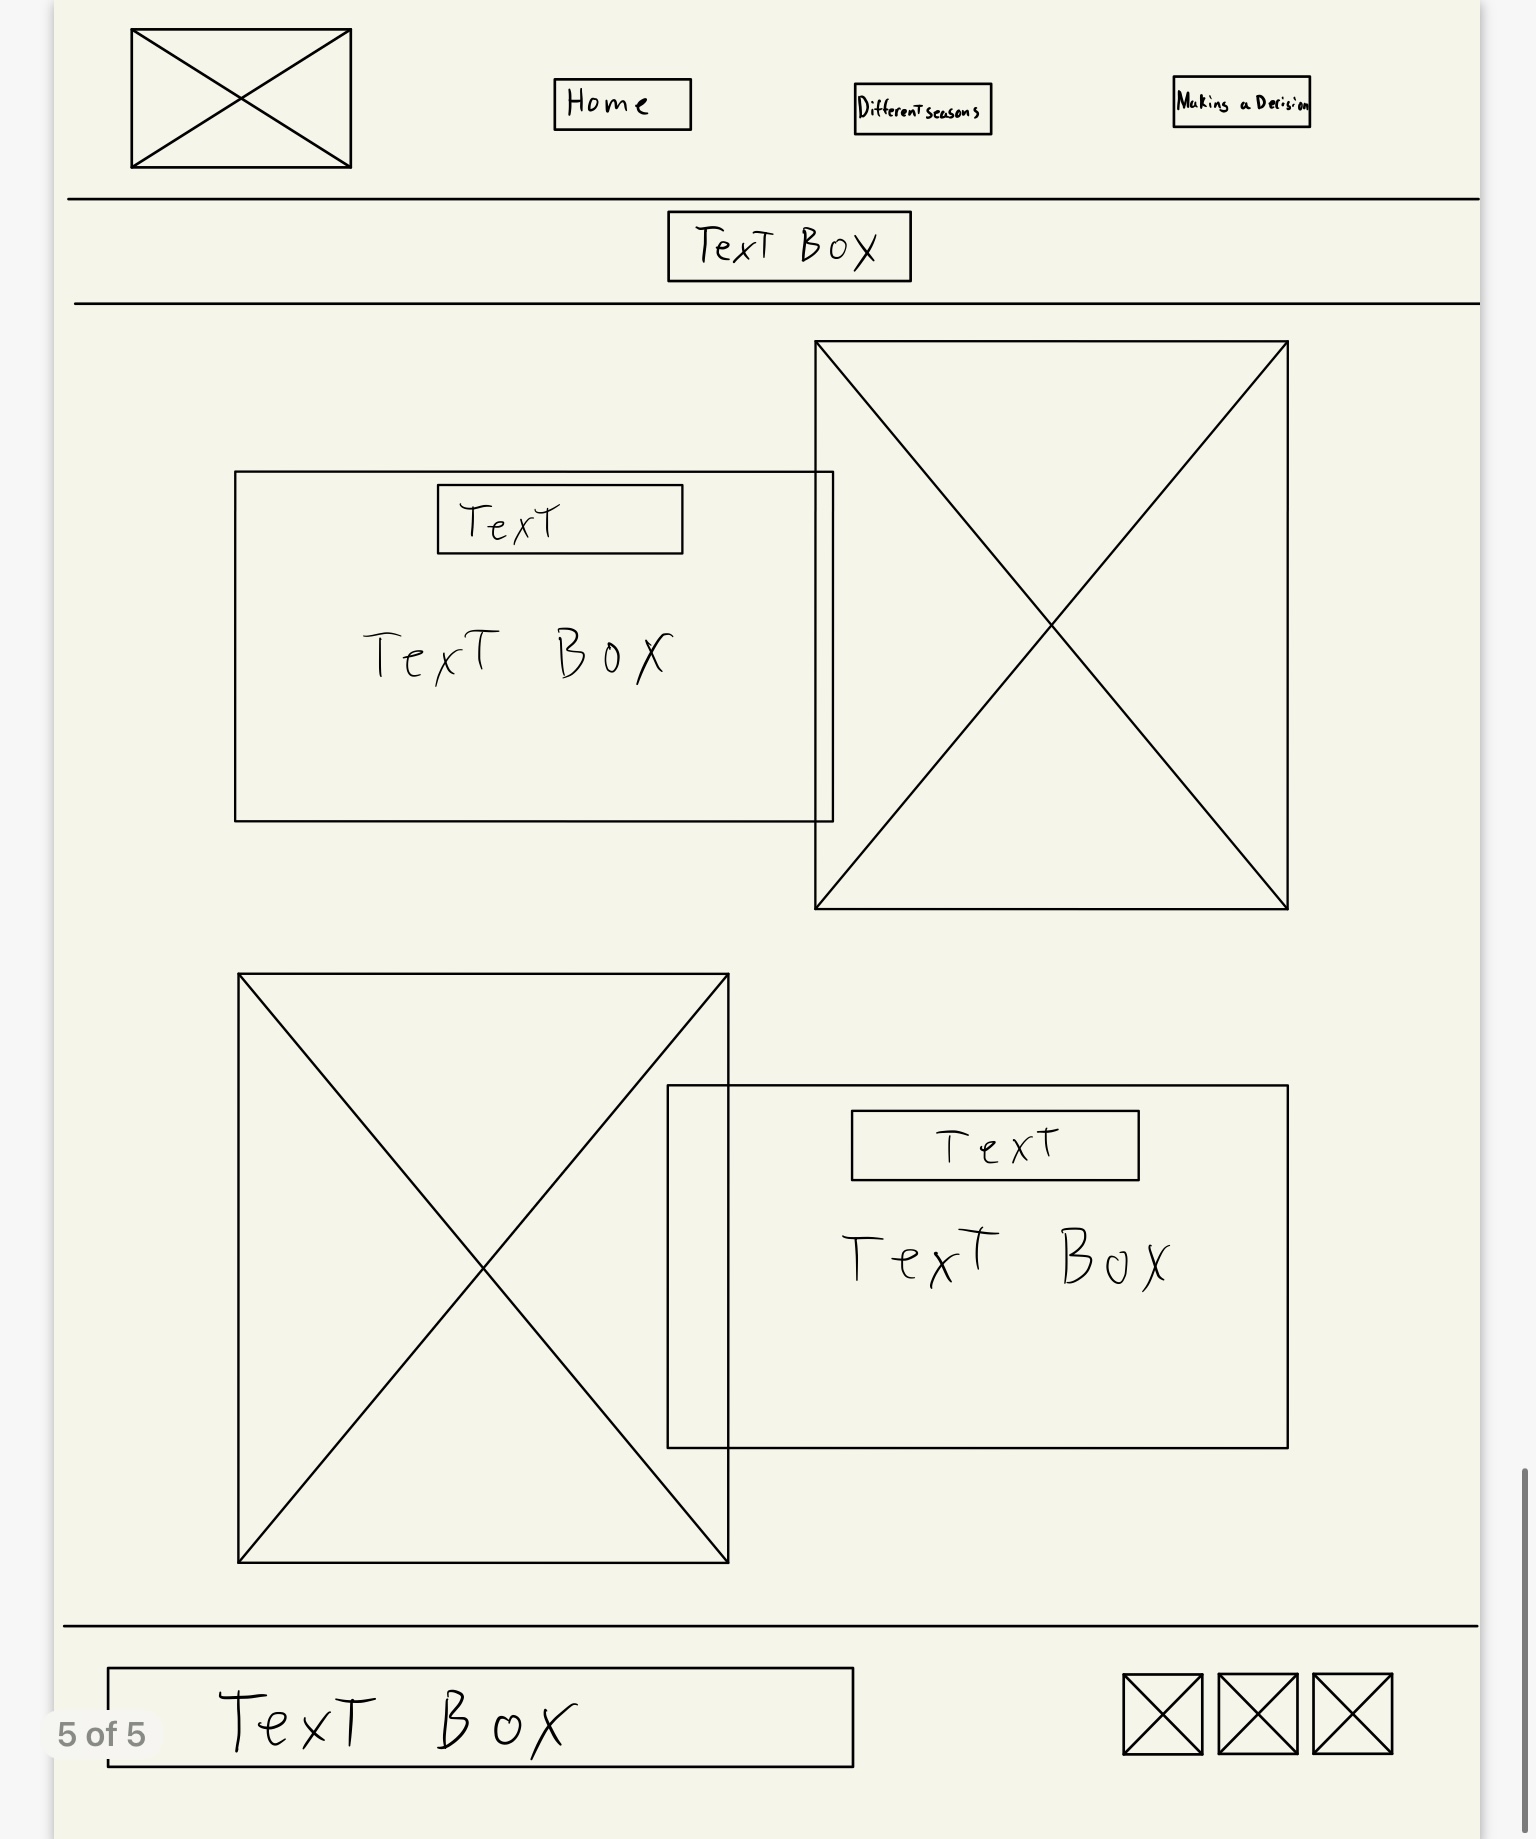 Home
Different seasons
Making a Decision
Text Box
Text
Text Box
Text
Text Box
Text Box
5 of 5